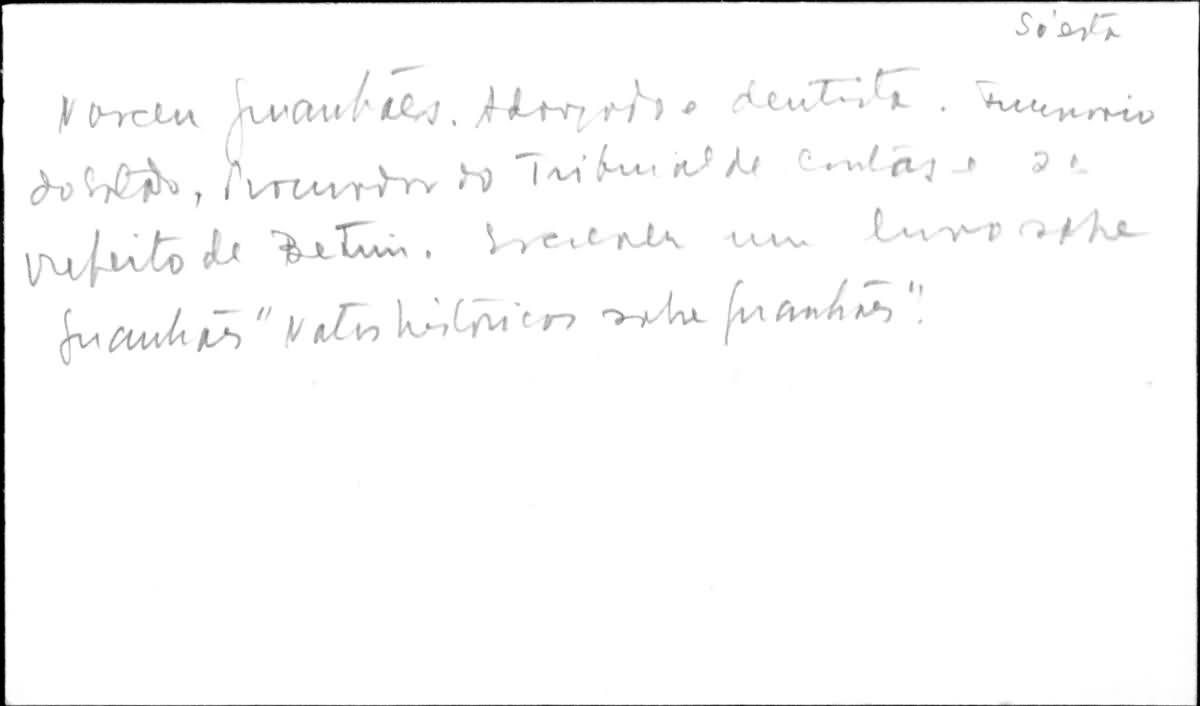 Só esta
Nasceu Guanhães. Advogado e dentista. Funcionário
do Estado, Procurador do Tribunal de Contas e
prefeito de Betim. Escreveu um livro sobre
Guanhães "Notas históricas sobre Guanhães".